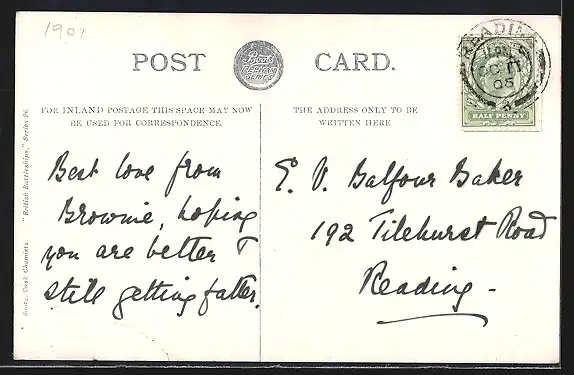 1901
POST CARD.
Boots
FOR INLAND POSTAGE THIS SPACE MAY NOW
BE USED FOR CORRESPONDENCE.
THE ADDRESS ONLY TO BE
WRITTEN HERE
READING
OC 17
05
HALF PENNY
Boots, Cash Chemists. "British Battleships," Series 26.
Best love from
Brownie, hoping
you are better &
still getting fatter.
E. V. Balfour Baker
192 Tilehurst Road
Reading -